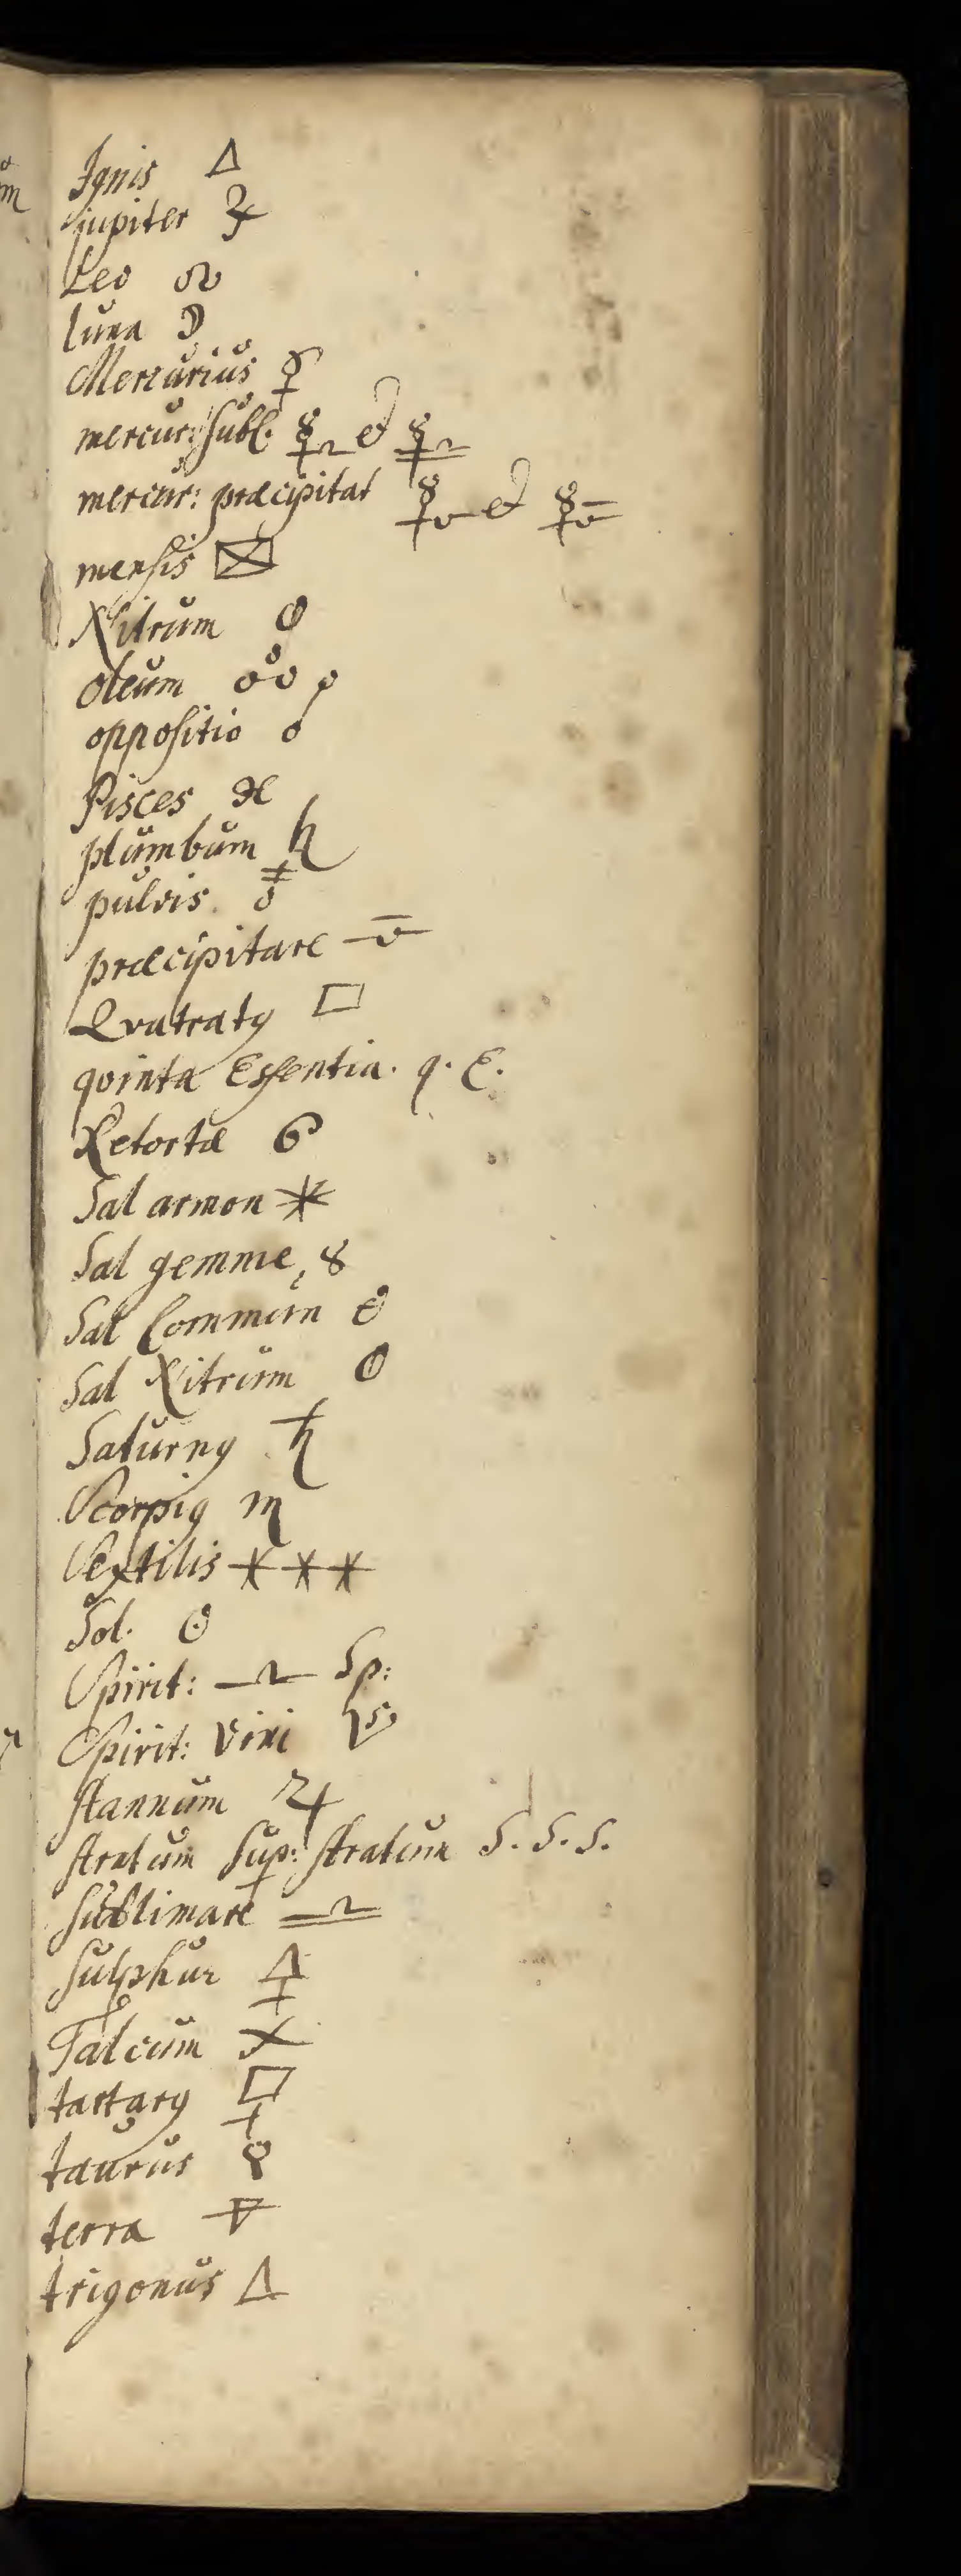 Ignis 🜂
jupiter ♃
Leo ♌
luna ☽
Mercurius ☿
mercur: subl. et
mercur: præcipitat et
mensis
Nitrum
oleum
oppositio ☍
Pisces ♓
plumbum ♄
pulvis.
præcipitare
Qvatratꝰ □
qvinta Essentia. q. E.
Retortæ
Sal armon
Sal gemme, 8
Sal Commun
Sal Nitrum
Saturnꝰ ♄
Scorpiꝰ ♏
Sextilis * * *
Sol. ☉
Spirit: Sp:
Spirit: Vini
stannum ♃
stratum sup: stratum S. S. S.
sublimare
sulphur 🜍
Talcum X
tartarꝰ
taurus ♉
terra 🜃
trigonus △